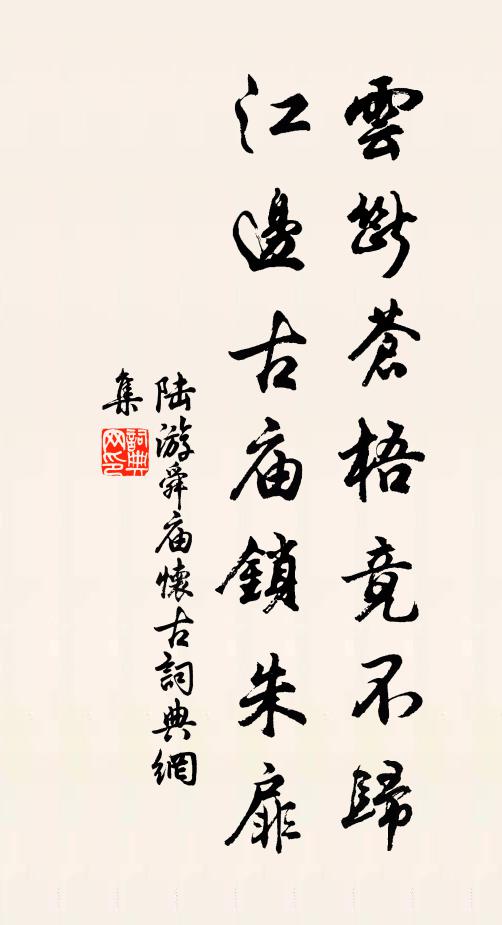 雲斷蒼梧竟不歸
江邊古庙鎖朱扉
陆游舜庙懷古詞典網
集
詞典
网印